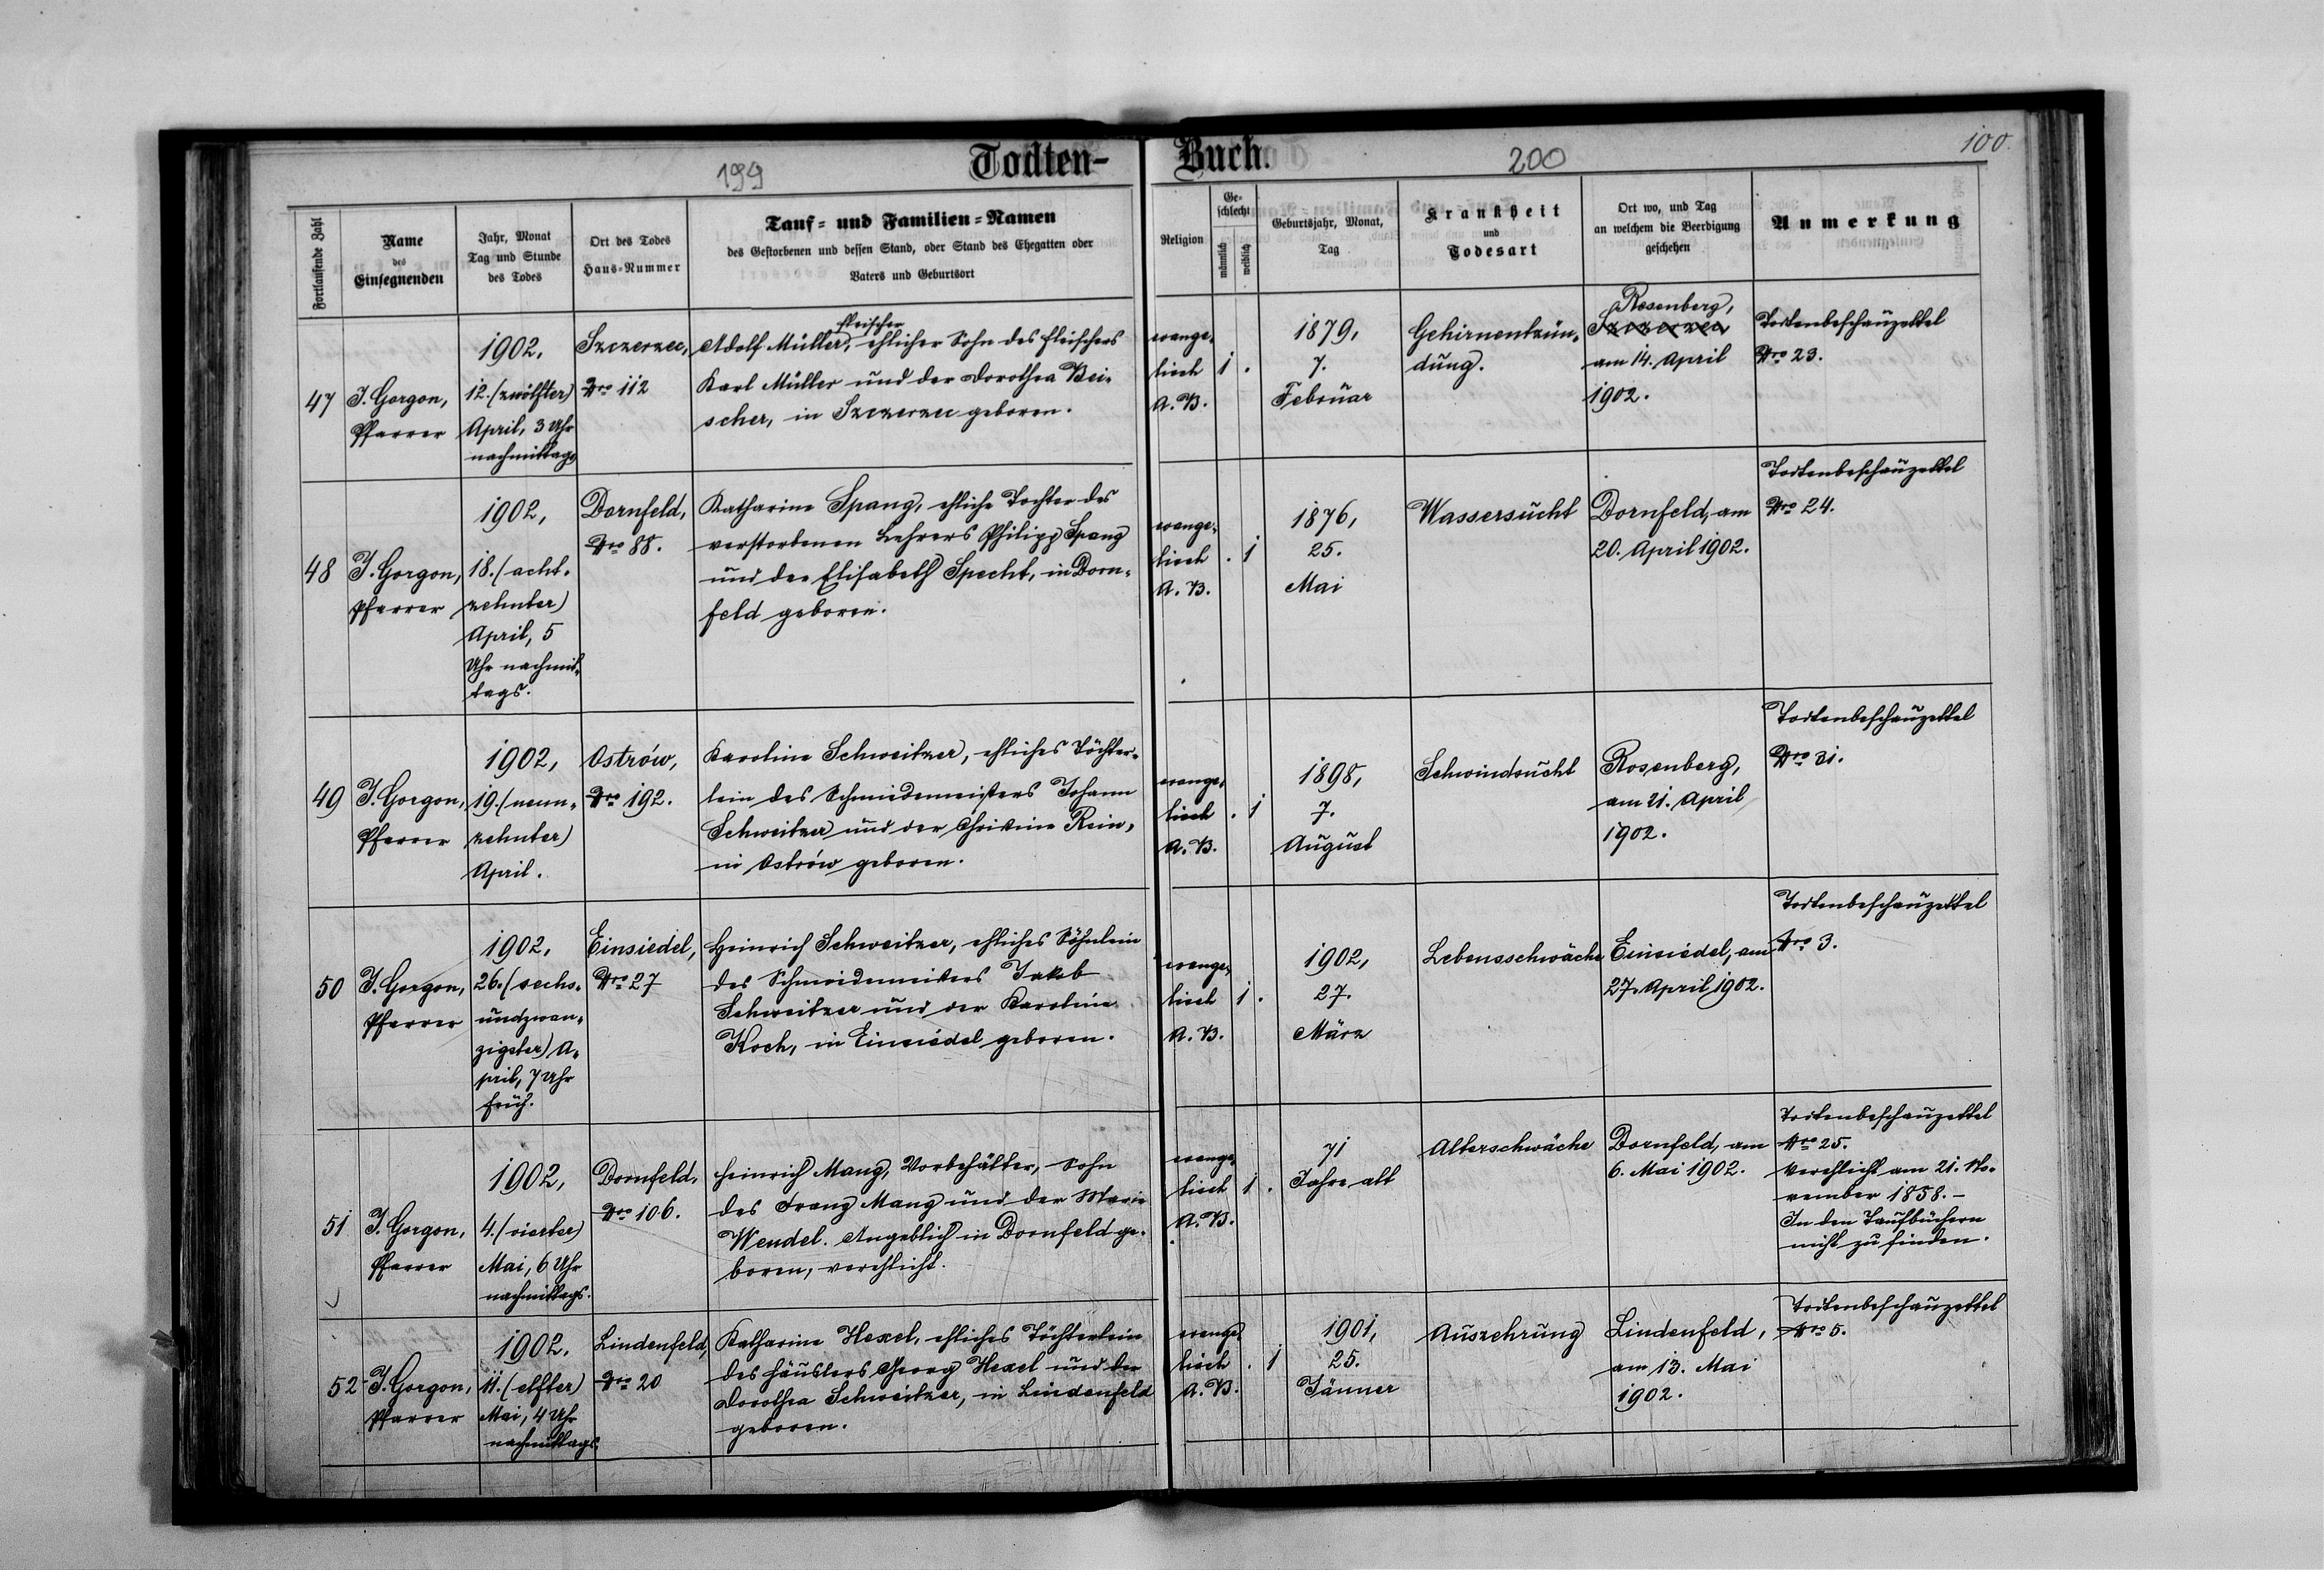 199
Todten-
Buch.
200
100.
Fortlaufende Zahl
Name
des
Einsegnenden
Jahr, Monat
Tag und Stunde
des Todes
Ort des Todes
Haus-Nummer
Tauf- und Familien-Namen
des Gestorbenen und dessen Stand, oder Stand des Ehegatten oder
Vaters und Geburtsort
Religion
Ge-
schlecht
männlich
weiblich
Geburtsjahr, Monat,
Tag
Krankheit
und
Todesart
Ort wo, und Tag
an welchem die Beerdigung
geschehen
Anmerkung
47
J. Gorgon,
Pfarrer
1902,
12. (zwölfter)
April, 3 Uhr
nachmittags
Szczerzec,
Nro 112
Fleischer
Adolf Müller, ehlicher Sohn des Fleischers
Karl Müller und der Dorothea Bei-
scher, in Szczerzec geboren.
evange-
lisch
A. B.
1 .
1879,
7.
Februar
Gehirnentzün-
dung.
Rosenberg,
Szczerzec
am 14. April
1902.
Todtenbeschauzettel
Nro 23.
48
J. Gorgon,
Pfarrer
1902,
18. (acht-
zehnter)
April, 5
Uhr nachmit-
tags.
Dornfeld,
Nro 88.
Katharine Spang, ehliche Tochter des
verstorbenen Lehrers Philipp Spang
und der Elisabeth Specht, in Dorn-
feld geboren.
evange-
lisch
A. B.
. 1
1876,
25.
Mai
Wassersucht
Dornfeld, am
20. April 1902.
Todtenbeschauzettel
Nro 24.
49
J. Gorgon,
Pfarrer
1902,
19. (neun-
zehnter)
April.
Ostrów,
Nro 192.
Karoline Schweitzer, ehliches Töchter-
lein des Schmiedemeisters Johann
Schweitzer und der Christine Rein,
in Ostrów geboren.
evange-
lisch
A. B.
. 1
1898,
7.
August
Schwindsucht
Rosenberg,
am 21. April
1902.
Todtenbeschauzettel
Nro 31.
50
J. Gorgon,
Pfarrer
1902,
26. (sechs-
undzwan-
zigster) A-
pril, 7 Uhr
früh.
Einsiedel,
Nro 27
Heinrich Schweitzer, ehliches Söhnlein
des Schmiedemeisters Jakob
Schweitzer und der Karoline
Koch, in Einsiedel geboren.
evange-
lisch
A. B.
1 .
1902,
27.
März
Lebensschwäche
Einsiedel, am
27. April 1902.
Todtenbeschauzettel
Nro 3.
51
J. Gorgon,
Pfarrer
1902,
4. (vierter)
Mai, 6 Uhr
nachmittags.
Dornfeld,
Nro 106.
Heinrich Mang, Vorbehälter, Sohn
des Franz Mang und der Marie
Wendel. Angeblich in Dornfeld ge-
boren, verehlicht.
evange-
lisch
A. B.
1 .
71
Jahre alt
Altersschwäche
Dornfeld, am
6. Mai 1902.
Todtenbeschauzettel
Nro 25.
Verehlicht am 21. No-
vember 1858. –
In den Taufbüchern
nicht zu finden.
52
J. Gorgon,
Pfarrer
1902.
11. (elfter)
Mai, 4 Uhr
nachmittags.
Lindenfeld,
Nro 20
Katharine Hexel, ehliches Töchterlein
des Häuslers Georg Hexel und der
Dorothea Schweitzer, in Lindenfeld
geboren.
evange-
lisch
A. B.
. 1
1901,
25.
Jänner
Auszehrung
Lindenfeld,
am 13. Mai
1902.
Todtenbeschauzettel
Nro 5.